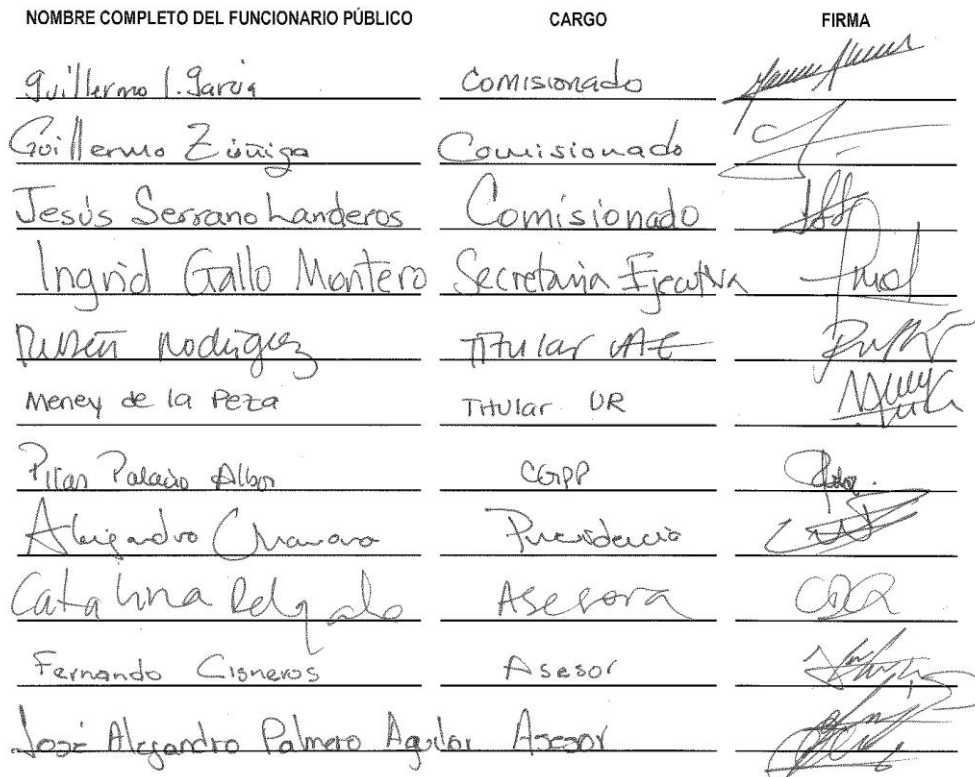 NOMBRE COMPLETO DEL FUNCIONARIO PÚBLICO CARGO FIRMA
Guillermo I. García Comisionado
Guillermo Zúñiga Comisionado
Jesús Serrano Landeros Comisionado
Ingrid Gallo Montero Secretaria Ejecutiva
Rubén Rodríguez Titular
Meney de la Peza Titular UR
Pilar Palacio Albor CGPP
Alejandro Presidencia
Catalina Delgado Asesora
Fernando Cisneros Asesor
José Alejandro Palmero Aguilar Asesor